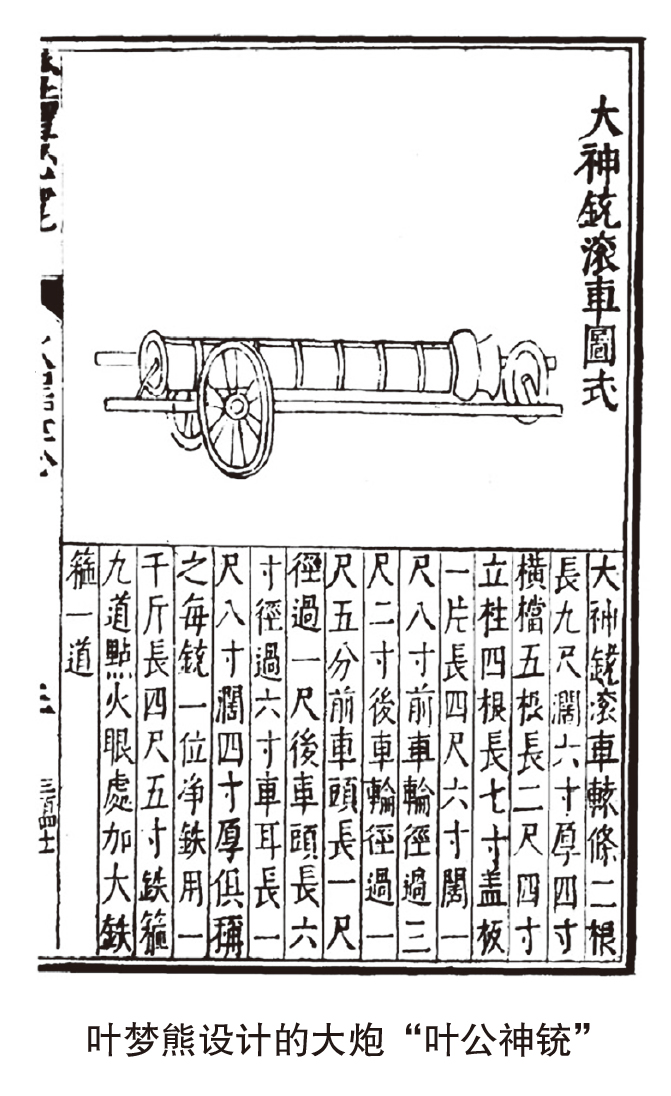 大神銃滚車圖式
大神銃滚車轅條二根
長九尺濶六寸厚四寸
橫檔五根長二尺四寸
立柱四根長七寸盖板
一片長四尺六寸闊一
尺八寸前車輪徑過三
尺二寸後車輪徑過一
尺五分前車頭長一尺
徑過一尺後車頭長六
寸徑過六寸車耳長一
尺八寸濶四寸厚俱稱
之每銃一位净鉄用一
千斤長四尺五寸鉄箍
九道點火眼處加大鉄
箍一道
叶梦熊设计的大炮“叶公神铳”